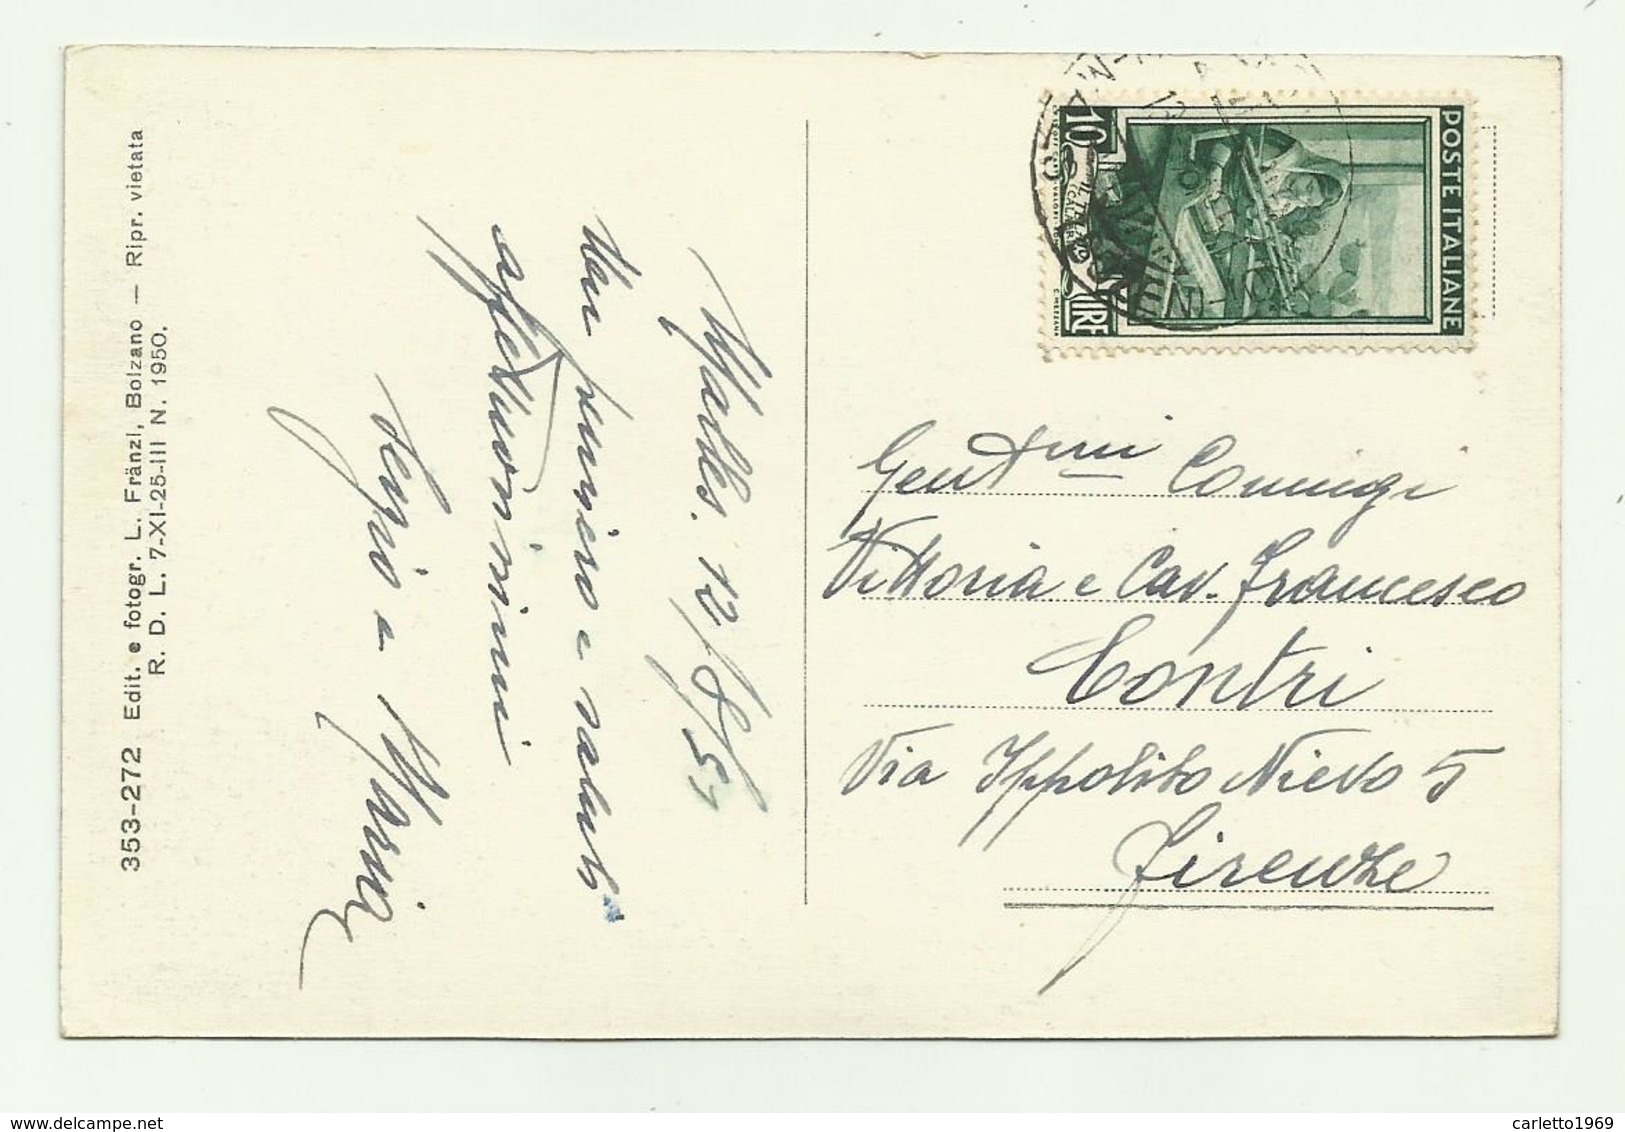 353-272 Edit. e fotogr. L. Fränzl, Bolzano — Ripr. vietata
R. D. L. 7-XI-25-III N. 1950.
12/8/51
Un pensiero e saluti
affettuosissimi
e Maria
POSTE ITALIANE
10
LIRE
Gent.mi Coniugi
Vittoria e Cav. Francesco
Contri
Via Ippolito Nievo 5
Firenze
carletto1969